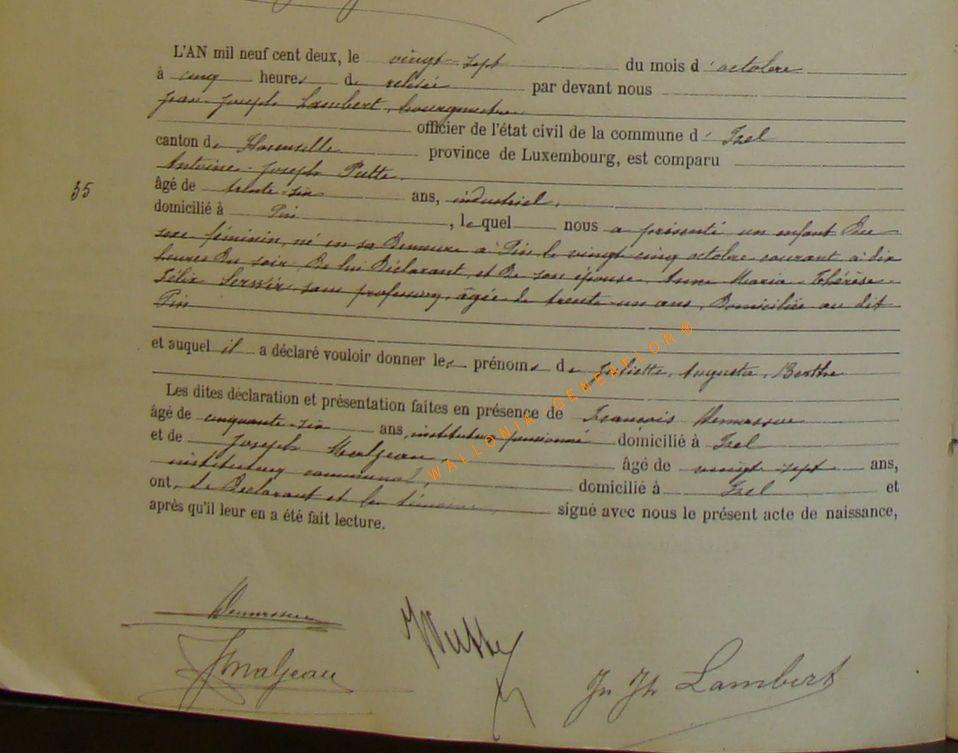 L'AN mil neuf cent deux, le vingt-sept du mois d'octobre
à cinq heures de relevée par devant nous
Jean-Joseph Lambert, bourgmestre
officier de l'état civil de la commune d'Izel
canton de Florenville province de Luxembourg, est comparu
Antoine-Joseph
35
âgé de trente-six ans, industriel,
domicilié à Pin, lequel nous a présenté un enfant du
sexe féminin, né en sa demeure à Pin, le vingt cinq octobre courant, à dix
heures du soir, de lui déclarant, et de son épouse, Anne Maria Thérèse
Félix sans profession, âgée de trente-un ans, domiciliée au dit
Pin
et auquel il a déclaré vouloir donner les prénoms de Juliette, Augusta, Berthe
Les dites déclaration et présentation faites en présence de François
âgé de cinquante-six ans, instituteur pensionné domicilié à Izel
et de Joseph Maljean, âgé de vingt sept ans,
instituteur communal, domicilié à Izel et
ont, le déclarant et les témoins, signé avec nous le présent acte de naissance,
après qu'il leur en a été fait lecture.
JMaljean
Jn Jh Lambert
WALLONIA-GENEA.FLOR®